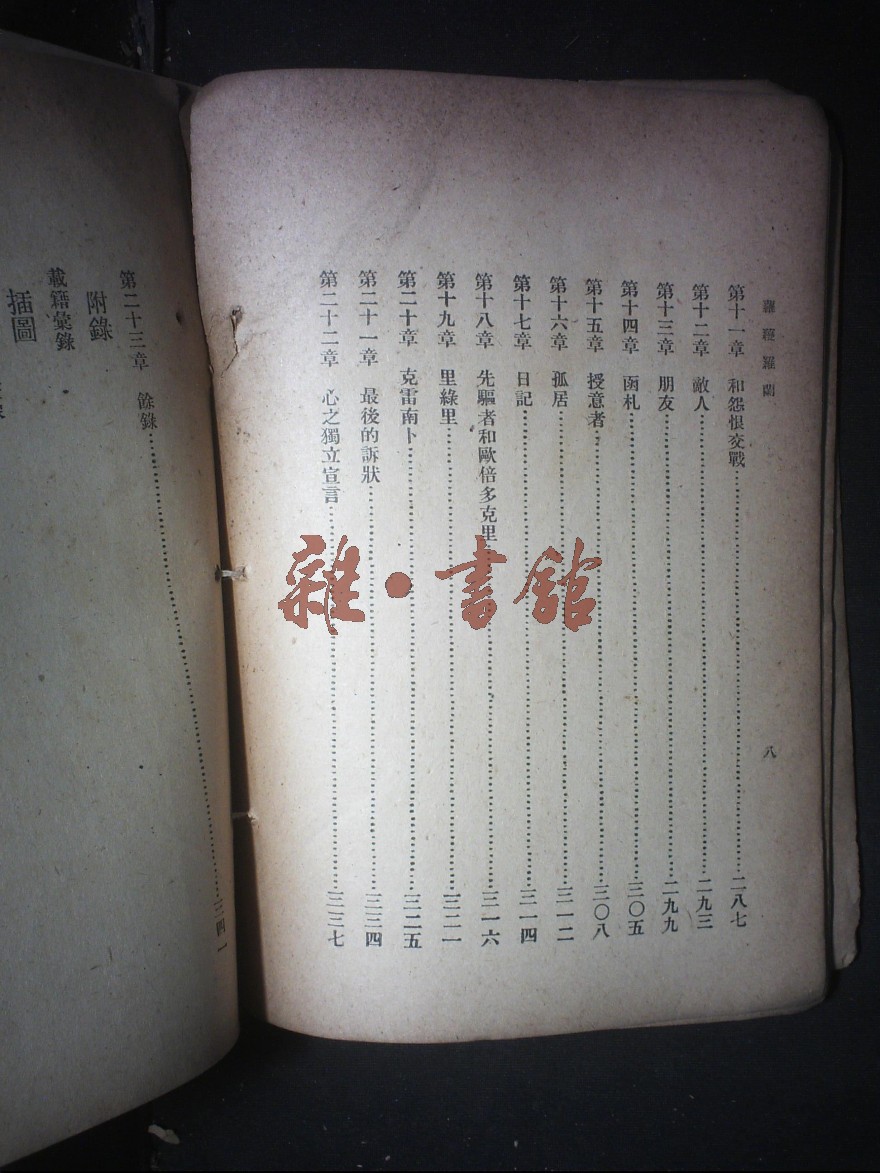 羅曼羅蘭
八
第十一章 和怨恨交戰……二八七
第十二章 敵人……二九三
第十三章 朋友……二九九
第十四章 函札……三〇五
第十五章 授意者……三〇八
第十六章 孤居……三一二
第十七章 日記……三一四
第十八章 先驅者和歐倍多克里……三一六
第十九章 里綠里……三二一
第二十章 克雷南卜……三二五
第二十一章 最後的訴狀……三三四
第二十二章 心之獨立宣言……三三七
第二十三章 餘錄……三四一
附錄
載籍彙錄
插圖
雜·書館